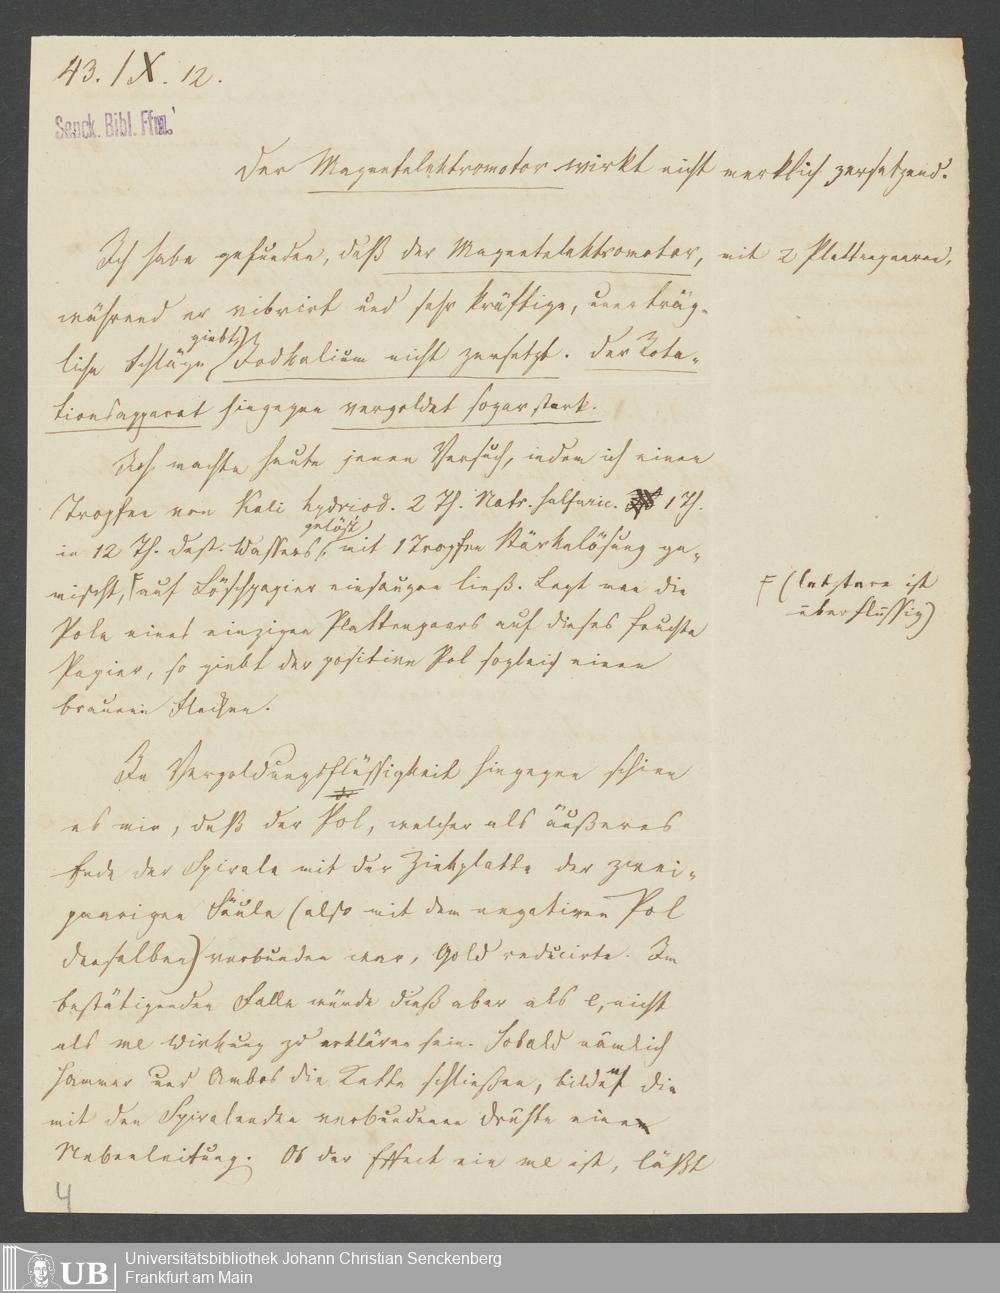 43. IX. 12.
Senck. Bibl. Ffm.
Der Magnetelektromotor wirkt nicht merklich zersetzend.
Ich habe gefunden, daß der Magnetelektromotor, mit 2 Plattenpaaren,
während er vibrirt und sehr kräftige, unerträg-
giebt,
liche Schläge Jodkalium nicht zersetzt. Der Rota-
tionsapparat hingegen vergoldet sogar stark.
Ich machte heute jenen Versuch, indem ich einen
Tropfen von Kali hydriod. 2 Th. Natr. sulfuric. 1 Th.
gelöst
in 12 Th. dest. Wassers, mit 1 Tropfen Stärkelösung ge-
mischt, auf Löschpapier einsaugen ließ. Legt man die
F (letztere ist
überflüssig)
Pole eines einzigen Plattenpaars auf dieses feuchte
Papier, so giebt der positive Pol sogleich einen
braunen Flecken.
In Vergoldungsflüssigkeit hingegen schien
es mir, daß der Pol, welcher als äußeres
Ende der Spirale mit der Zinkplatte der zwei-
paarigen Säule (also mit dem negativen Pol
derselben) verbunden war, Gold reducirte. Im
bestätigenden Falle würde dieß aber als e, nicht
als me Wirkung zu erklären sein. Sobald nämlich
Hammer und Ambos die Kette schließen, bilden die
mit den Spiralenden verbundenen Drähte eine
Nebenleitung. Ob der Effect ein me ist, läßt
4
Universitätsbibliothek Johann Christian Senckenberg
UB
Frankfurt am Main